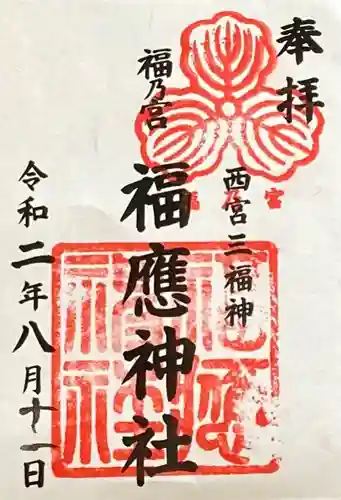 奉拝
西宮三福神
福乃宮
福應神社
令和二年八月十一日